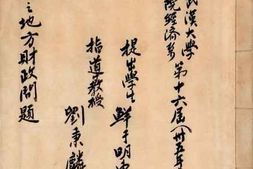 武漢大學
院經濟系第十六屆(卅五年
提出學生 鮮于明
指道教授 劉秉麟
之地方財政問題